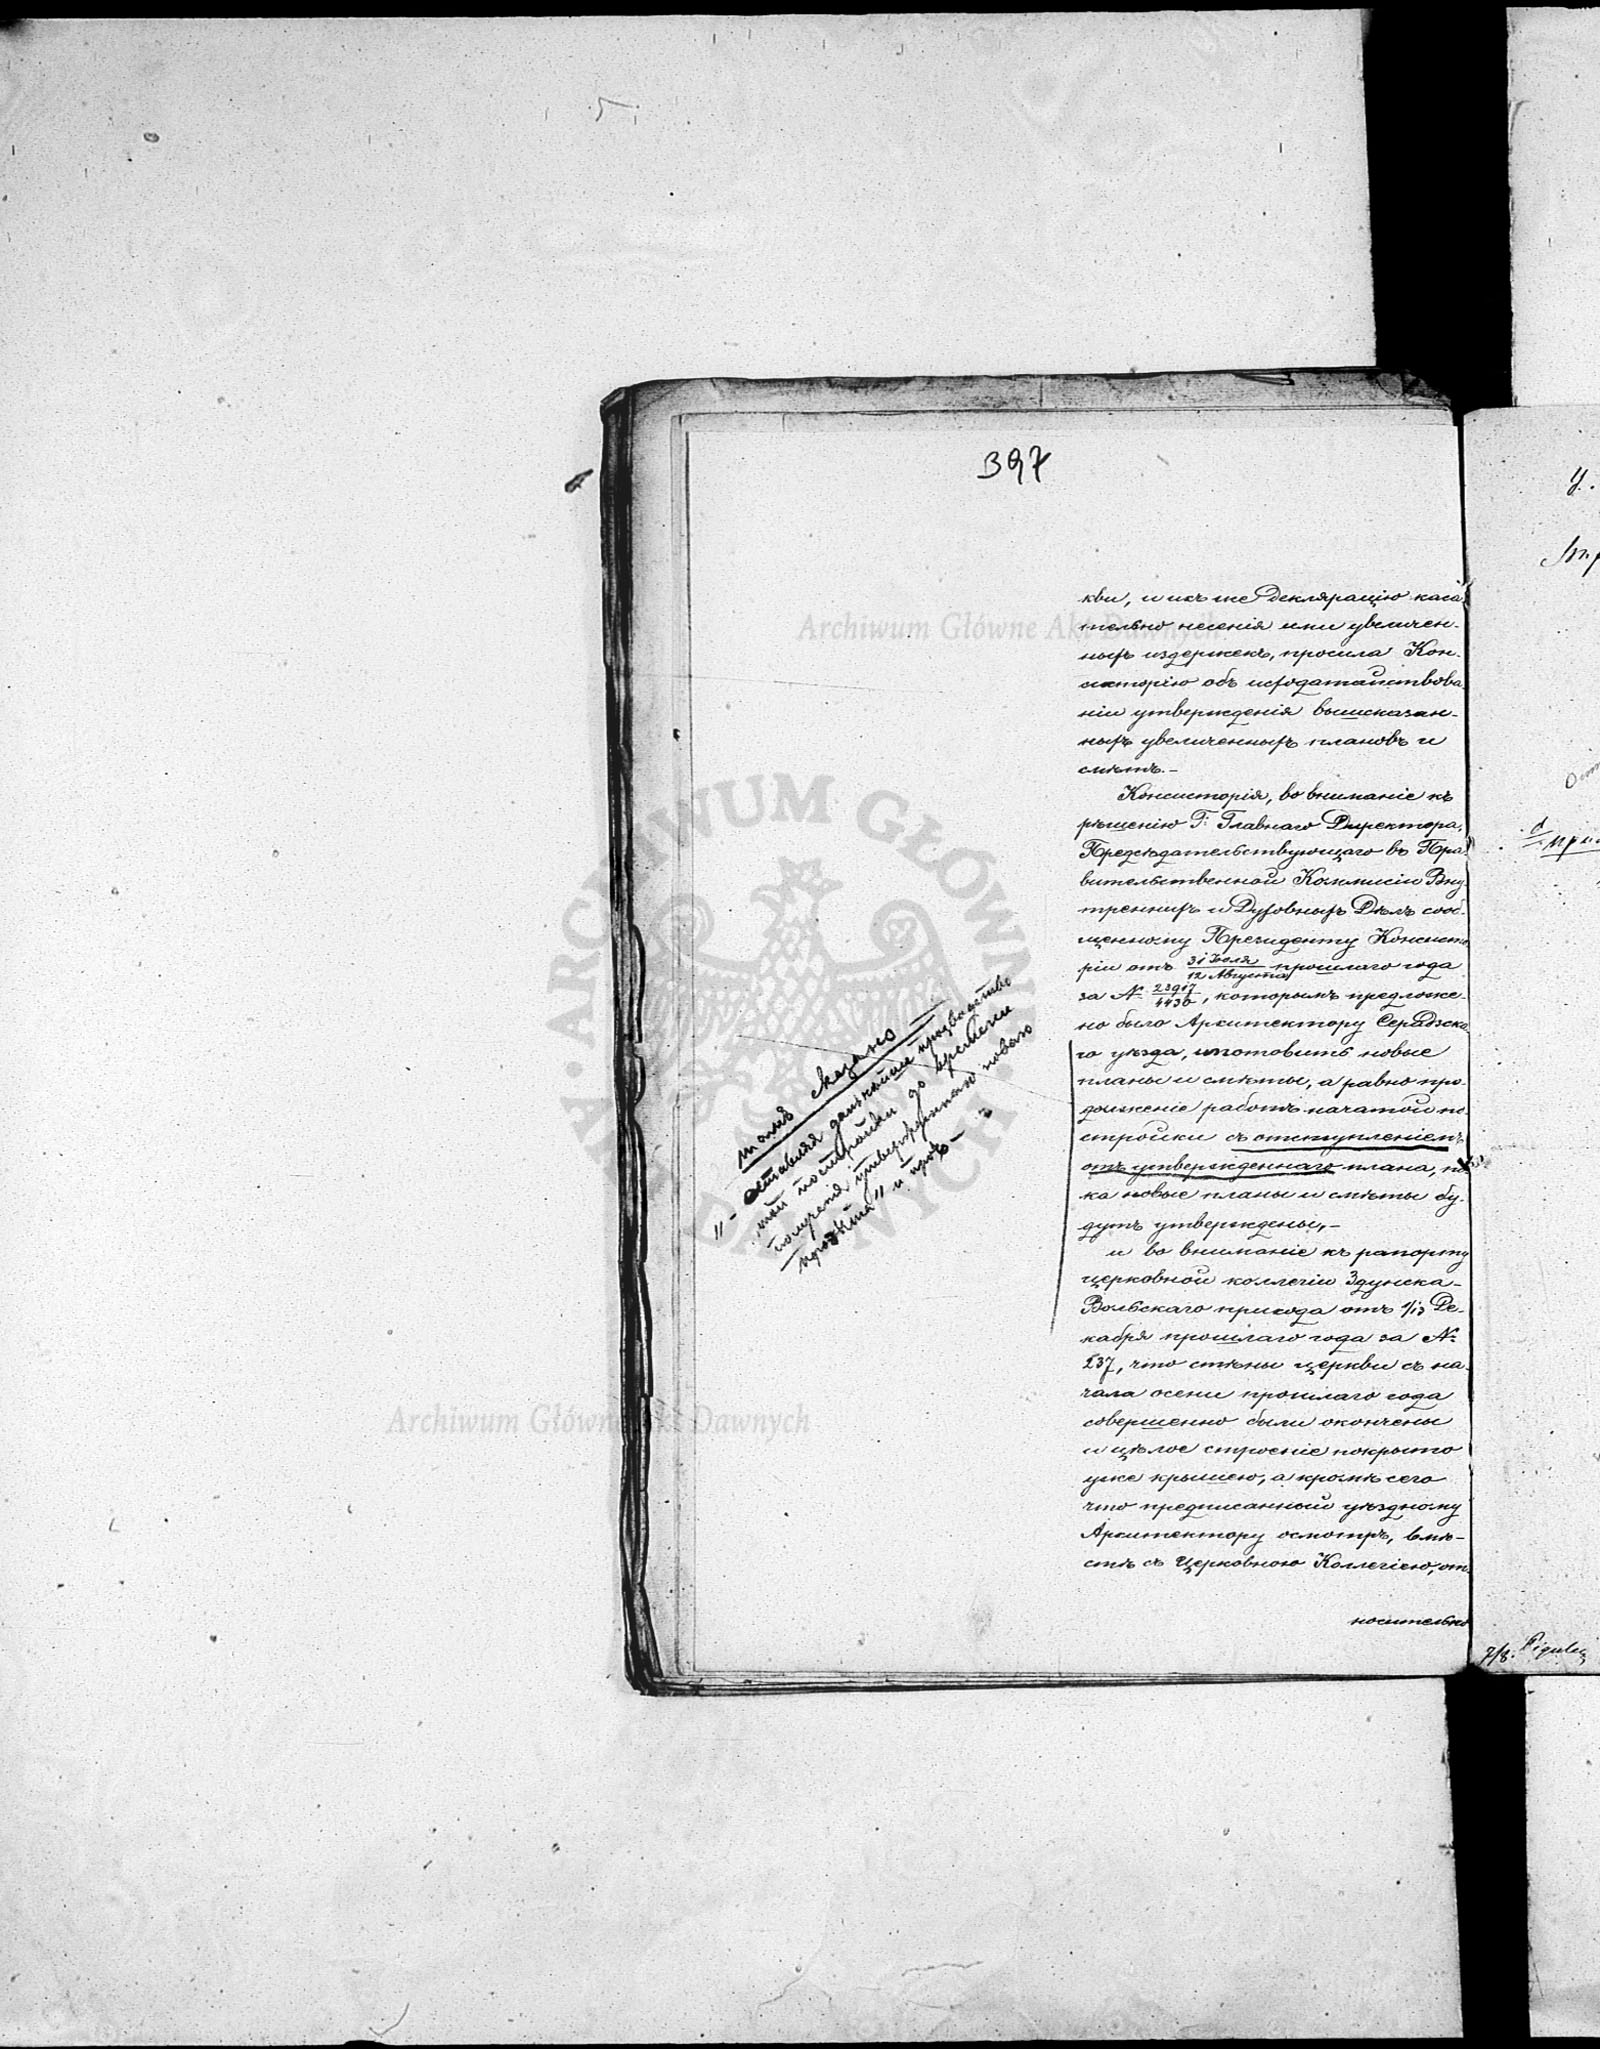 397
кви, и ихъ же Деклярацію каса-
тельно несенія ими увеличен-
ныхъ издержекъ, просила Кон-
систорію объ исходатайствова-
ніи утвержденія вышсказан-
ныхъ увеличенныхъ плановъ и
смѣтъ.-
Консисторія, во вниманіе къ
рѣшенію Г: Главнаго Директора,
Предсѣдательствующаго въ Пра-
вительственной Коммисіи Вну-
треннихъ и Духовныхъ Дѣлъ сооб-
щенному Президенту Консисто-
ріи отъ 31 Іюля/12 Августа прошлаго года
за № 23917/4430, которымъ предложе-
но было Архитектору Серадзска-
го уѣзда, изготовить новые
планы и смѣты, а равно про-
долженіе работъ начатой по-
стройки съ отступленіемъ
отъ утвержденнаго плана, по-
ка новые планы и смѣты бу-
дутъ утверждены,-
и во вниманіе къ рапорту
церковной коллегіи Здунска-
Вольскаго прихода отъ 1/13 Де-
кабря прошлаго года за №
237, что стѣны церкви съ на-
чала осени прошлаго года
совершенно были окончены
и цѣлое строеніе покрыто
уже крышею, а кромѣ сего
что предписанный уѣздному
Архитектору осмотръ, вмѣ-
стѣ съ Церковною Коллегіею, от-
носительно
тамъ сказано
"- оставляя дальнѣйшее производство
той постройки до времени
полученія утвержденнаго новаго
проэкта" и проч-
Archiwum Główne Akt Dawnych
Archiwum Główne Akt Dawnych
ARCHIWUM GŁÓWNE AKT DAWNYCH
7/8.